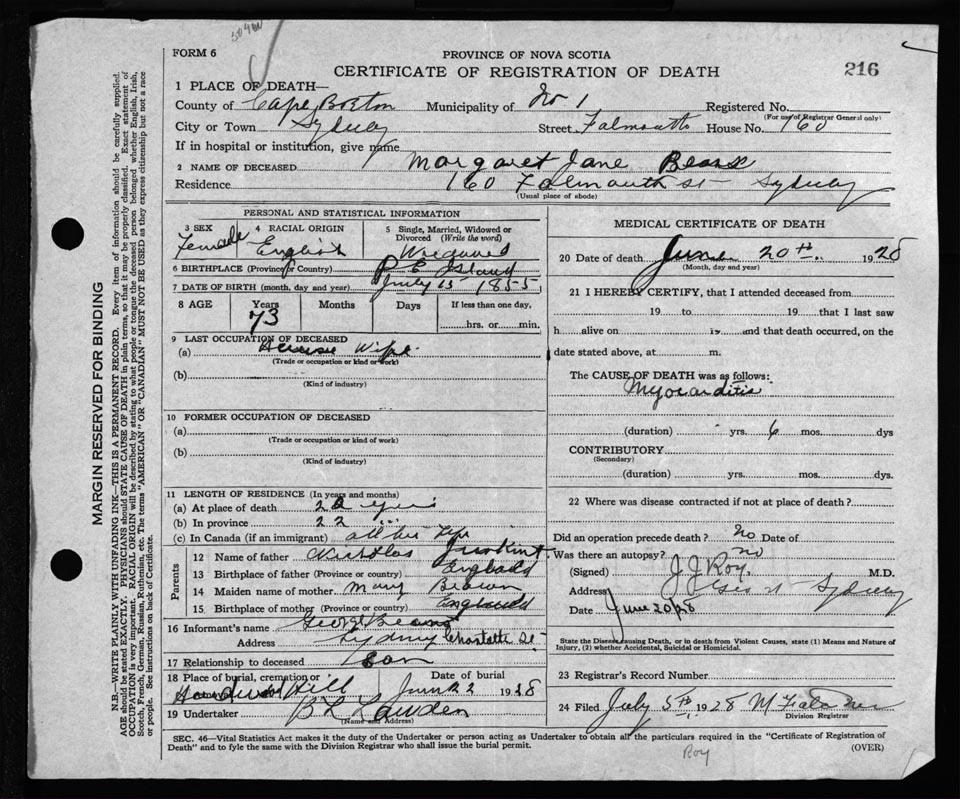 FORM 6
PROVINCE OF NOVA SCOTIA
CERTIFICATE OF REGISTRATION OF DEATH
216
1 PLACE OF DEATH—
County of Cape Breton Municipality of No 1 Registered No.
(For use of Registrar General only)
City or Town Sydney Street Falmouth House No. 160
If in hospital or institution, give name
2 NAME OF DECEASED Margaret Jane
Residence 160 Falmouth St - Sydney
(Usual place of abode)
PERSONAL AND STATISTICAL INFORMATION
3 SEX Female
4 RACIAL ORIGIN English
5 Single, Married, Widowed or Divorced (Write the word) Widowed
6 BIRTHPLACE (Province or Country) P E Island
7 DATE OF BIRTH (month, day and year) July 15 1855
8 AGE Years 73 Months Days If less than one day, hrs. or min.
9 LAST OCCUPATION OF DECEASED
(a) House Wife
(Trade or occupation or kind of work)
(b)
(Kind of industry)
10 FORMER OCCUPATION OF DECEASED
(a)
(Trade or occupation or kind of work)
(b)
(Kind of industry)
11 LENGTH OF RESIDENCE (In years and months)
(a) At place of death 22 yrs
(b) In province 22 "
(c) In Canada (if an immigrant) all her life
Parents
12 Name of father Nicholas
13 Birthplace of father (Province or country) England
14 Maiden name of mother Mary Brown
15 Birthplace of mother (Province or country) England
16 Informant's name George
Address Sydney Charlotte St
17 Relationship to deceased Son
18 Place of burial, cremation or Date of burial
Hardwood Hill June 22 1928
19 Undertaker
(Name and Address)
MEDICAL CERTIFICATE OF DEATH
20 Date of death June 20th 1928
(Month, day and year)
21 I HEREBY CERTIFY, that I attended deceased from
19 to 19 that I last saw
h alive on 19 and that death occurred, on the
date stated above, at m.
The CAUSE OF DEATH was as follows:
Myocarditis
(duration) yrs. 6 mos. dys
CONTRIBUTORY
(Secondary)
(duration) yrs. mos. dys.
22 Where was disease contracted if not at place of death?
Did an operation precede death? No Date of
Was there an autopsy? no
(Signed) J J Roy, M.D.
Address Sydney
Date June 20/28
State the Disease causing Death, or in death from Violent Causes, state (1) Means and Nature of
Injury, (2) whether Accidental, Suicidal or Homicidal.
23 Registrar's Record Number
24 Filed July 5th 1928
Division Registrar
SEC. 46—Vital Statistics Act makes it the duty of the Undertaker or person acting as Undertaker to obtain all the particulars required in the "Certificate of Registration of
Death" and to fyle the same with the Division Registrar who shall issue the burial permit.
(OVER)
Roy
MARGIN RESERVED FOR BINDING
N.B.—WRITE PLAINLY WITH UNFADING INK—THIS IS A PERMANENT RECORD. Every item of information should be carefully supplied.
AGE should be stated EXACTLY. PHYSICIANS should STATE CAUSE OF DEATH in plain terms, so that it may be properly classified. Exact statement of
OCCUPATION is very important. RACIAL ORIGIN will be described by stating to what people or tongue the deceased person belonged, whether English, Irish,
Scotch, French, German, Russian, Ruthenian, etc. The terms "AMERICAN" or "CANADIAN" MUST NOT BE USED as they express citizenship but not a race
or people. See instructions on back of Certificate.